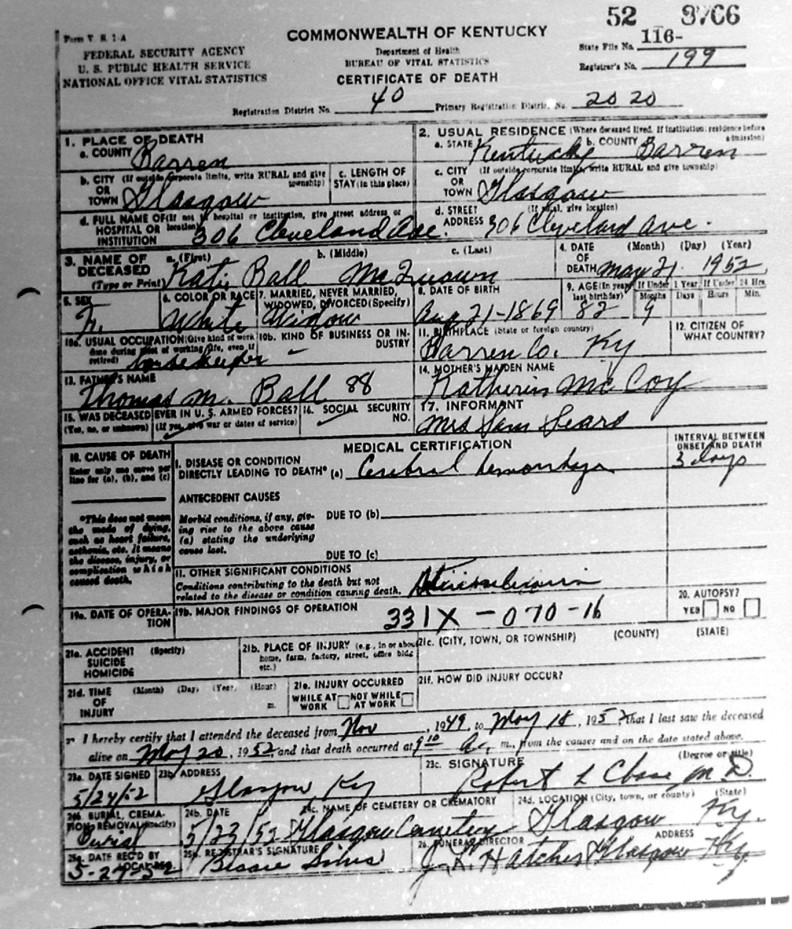 52 3766
Form V. S. 1-A
COMMONWEALTH OF KENTUCKY
State File No. 116-
FEDERAL SECURITY AGENCY
Department of Health
U. S. PUBLIC HEALTH SERVICE
BUREAU OF VITAL STATISTICS
Registrar's No. 199
NATIONAL OFFICE VITAL STATISTICS
CERTIFICATE OF DEATH
Registration District No. 40 Primary Registration District No. 2020
1. PLACE OF DEATH
a. COUNTY Barren
2. USUAL RESIDENCE (Where deceased lived. If institution: residence before admission)
a. STATE Kentucky b. COUNTY Barren
b. CITY (If outside corporate limits, write RURAL and give township) OR TOWN Glasgow
c. LENGTH OF STAY (in this place)
c. CITY (If outside corporate limits, write RURAL and give township) OR TOWN Glasgow
d. FULL NAME OF (If not in hospital or institution, give street address or location) HOSPITAL OR INSTITUTION 306 Cleveland Ave.
d. STREET ADDRESS (If rural, give location) 306 Cleveland Ave.
3. NAME OF DECEASED (Type or Print)
a. (First) b. (Middle) c. (Last)
Kate Ball McQuown
4. DATE OF DEATH (Month) (Day) (Year)
May 21. 1952
5. SEX F.
6. COLOR OR RACE White
7. MARRIED, NEVER MARRIED, WIDOWED, DIVORCED (Specify) Widow
8. DATE OF BIRTH Aug 21-1869
9. AGE (In years last birthday) 82
If Under 1 Year Months 9 Days
If Under 24 Hrs. Hours Min.
10a. USUAL OCCUPATION (Give kind of work done during most of working life, even if retired) housekeeper
10b. KIND OF BUSINESS OR INDUSTRY
11. BIRTHPLACE (State or foreign country) Barren Co. Ky
12. CITIZEN OF WHAT COUNTRY?
13. FATHER'S NAME
Thomas M. Ball 88
14. MOTHER'S MAIDEN NAME
Katherin McCoy
15. WAS DECEASED EVER IN U. S. ARMED FORCES?
(Yes, no, or unknown) (If yes, give war or dates of service)
16. SOCIAL SECURITY NO.
17. INFORMANT
Mrs Sam Sears
18. CAUSE OF DEATH
Enter only one cause per line for (a), (b), and (c)
MEDICAL CERTIFICATION
INTERVAL BETWEEN ONSET AND DEATH
I. DISEASE OR CONDITION DIRECTLY LEADING TO DEATH* (a) Cerebral hemorrhage
3 days
ANTECEDENT CAUSES
*This does not mean the mode of dying, such as heart failure, asthenia, etc. It means the disease, injury, or complication which caused death.
Morbid conditions, if any, giving rise to the above cause (a) stating the underlying cause last.
DUE TO (b)
DUE TO (c)
II. OTHER SIGNIFICANT CONDITIONS
Conditions contributing to the death but not related to the disease or condition causing death.
19a. DATE OF OPERATION
19b. MAJOR FINDINGS OF OPERATION
331X - 070 - 16
20. AUTOPSY?
YES NO
21a. ACCIDENT SUICIDE HOMICIDE (Specify)
21b. PLACE OF INJURY (e.g., in or about home, farm, factory, street, office bldg etc.)
21c. (CITY, TOWN, OR TOWNSHIP) (COUNTY) (STATE)
21d. TIME OF INJURY (Month) (Day) (Year) (Hour) m.
21e. INJURY OCCURRED
WHILE AT WORK NOT WHILE AT WORK
21f. HOW DID INJURY OCCUR?
I hereby certify that I attended the deceased from Nov 1949, to May 18, 1952 that I last saw the deceased
alive on May 20, 1952 and that death occurred at 9:10 a. m., from the causes and on the date stated above.
23a. DATE SIGNED 5/24/52
23b. ADDRESS Glasgow Ky
23c. SIGNATURE (Degree or title) Robert L Chase M. D.
24a. BURIAL, CREMATION REMOVAL (Specify) Burial
24b. DATE 5/23/52
24c. NAME OF CEMETERY OR CREMATORY Glasgow Cemetery
24d. LOCATION (City, town, or county) (State) Glasgow Ky.
25a. DATE REC'D BY LOCAL REG. 5-24-52
25b. REGISTRAR'S SIGNATURE Bessie
26. FUNERAL DIRECTOR ADDRESS
Hatcher Glasgow Ky